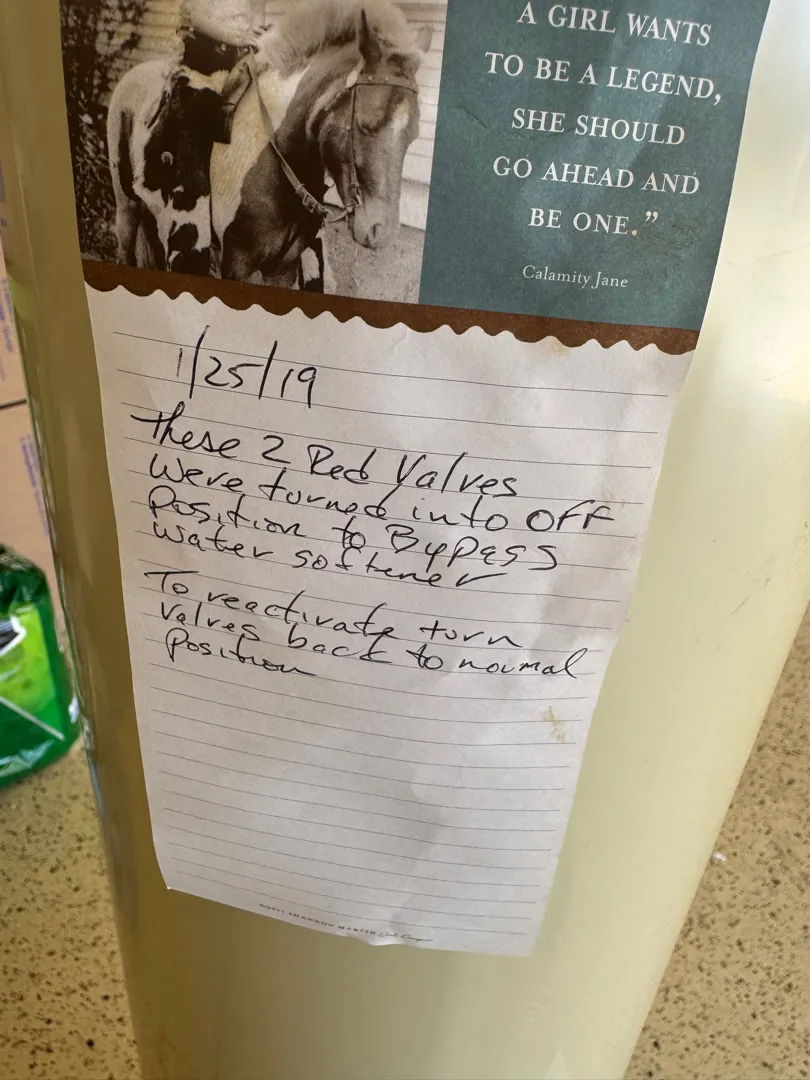 A GIRL WANTS
TO BE A LEGEND,
SHE SHOULD
GO AHEAD AND
BE ONE.”
Calamity Jane
1/25/19
these 2 Red Valves
were turned into OFF
Position to Bypass
water softener
To reactivate turn
Valves back to normal
Position
SHANNON MARTIN